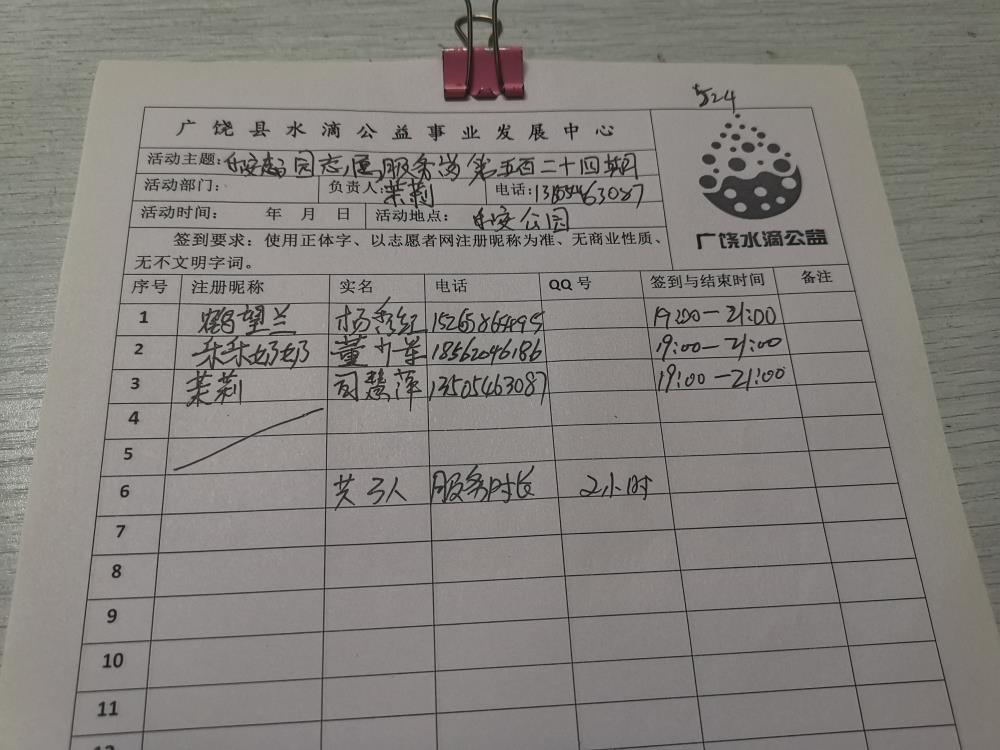 524
广饶县水滴公益事业发展中心
活动主题：乐安公园志愿服务岗第五百二十四期
活动部门： 负责人：茉莉 电话：13505463087
活动时间： 年 月 日 活动地点： 乐安公园
签到要求：使用正体字、以志愿者网注册昵称为准、无商业性质、
无不文明字词。
广饶水滴公益
序号 注册昵称 实名 电话 QQ号 签到与结束时间 备注
1 鹤望兰 杨秀红 19:00—21:00
2 乐乐奶奶 董少华 18562046186 19:00—21:00
3 茉莉 司慧萍 13505463087 19:00—21:00
4
5
6 共3人 服务时长 2小时
7
8
9
10
11
12